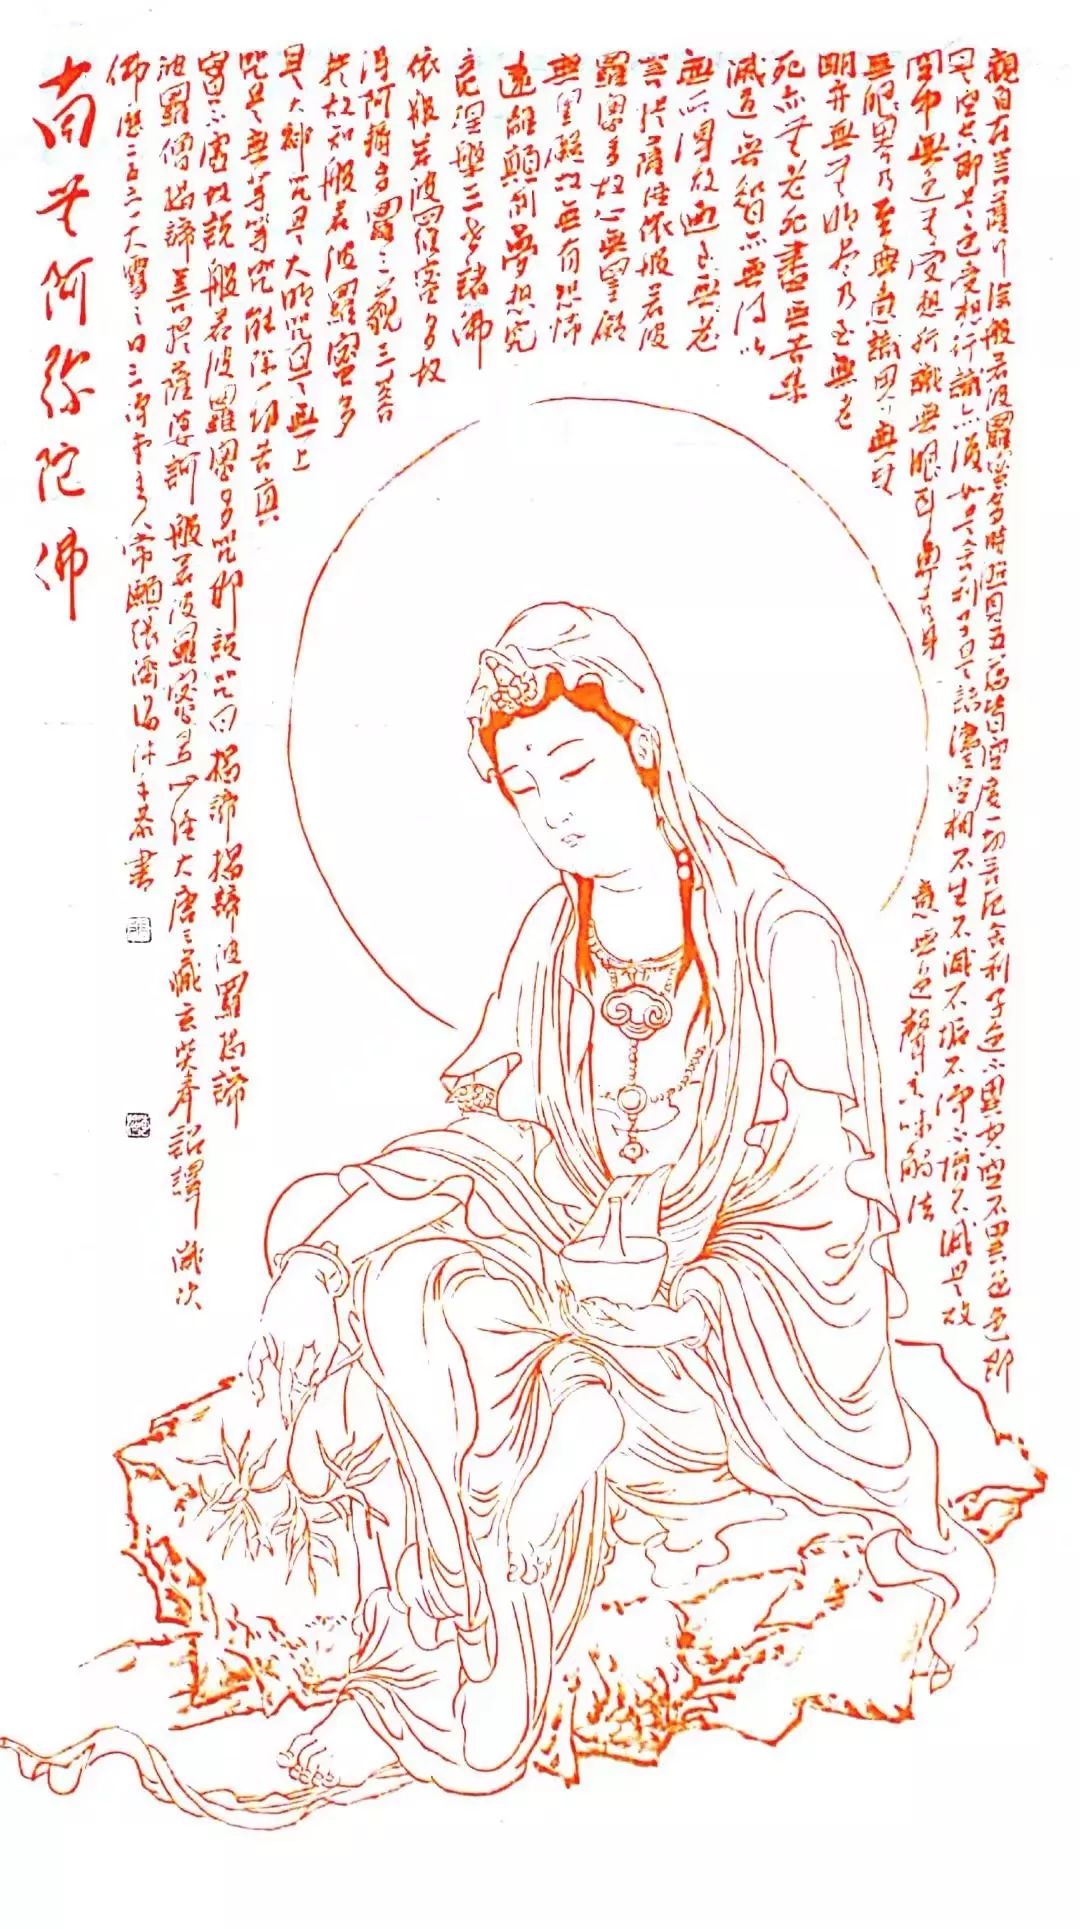 觀自在菩薩行深般若波羅蜜多時照見五蘊皆空度一切苦厄舍利子色不異空空不異色色即
是空空即是色受想行識亦須如是舍利子是諸法空相不生不滅不垢不淨不增不減是故
空中無色無受想行識無眼耳鼻舌身
意無色聲香味觸法
無眼界乃至無意識界無無
明亦無無明盡乃至無老
死亦無老死盡無苦集
滅道無智亦無得以
無所得故
菩提薩埵依般若波
羅蜜多故心無罣礙
無罣礙故無有恐怖
遠離顛倒夢想究
竟涅槃三世諸佛
依般若波羅蜜多故
得阿耨多羅三藐三菩
提故知般若波羅蜜多
是大神咒是大明咒是無上
咒是無等等咒能除一切苦真
實不虛故說般若波羅蜜多咒即說咒曰揭諦揭諦波羅揭諦
波羅僧揭諦菩提薩婆訶般若波羅蜜多心經大唐三藏玄奘奉詔譯 歲次
佛曆二五六一大雪之日三 常願張濟海沐手恭書
南无阿弥陀佛